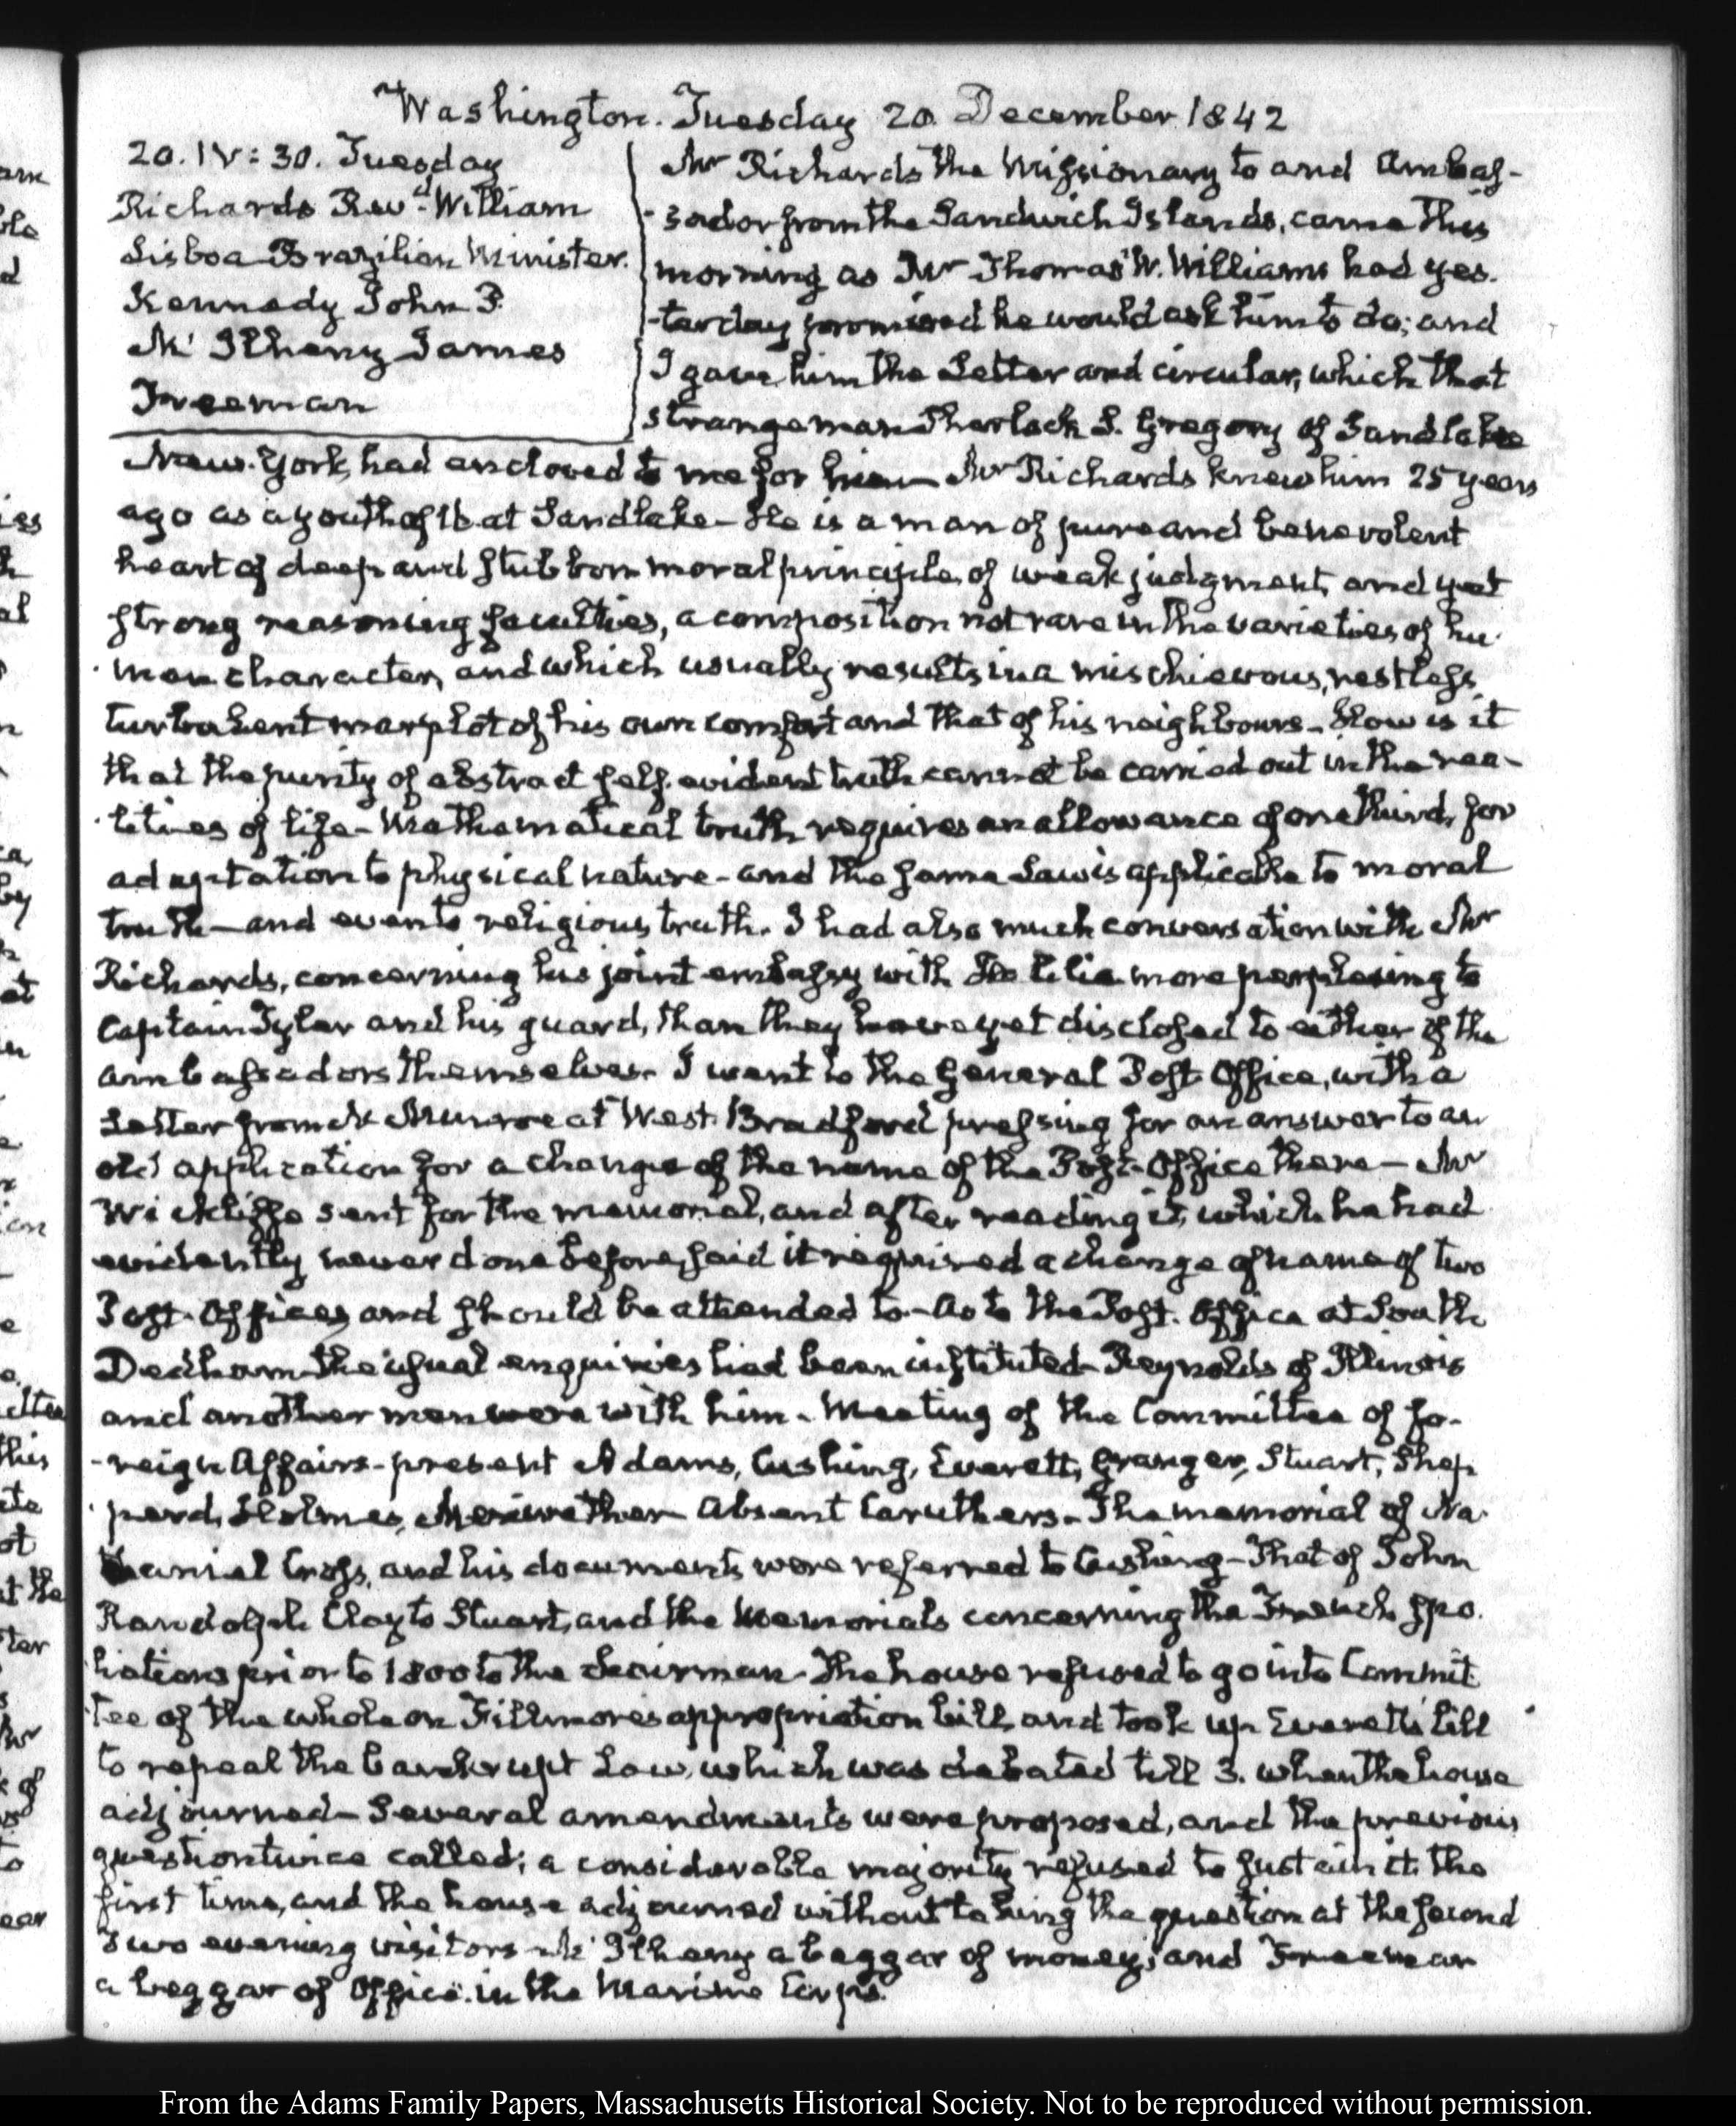 Washington. Tuesday 20. December 1842
20. IV: 30. Tuesday
Richards Revd. William
Lisboa Brazilian Minister.
Kennedy John P.
McIlheny James
Freeman
Mr Richards the Missionary to and Ambas-
-sador from the Sandwich Islands, came this
morning as Mr Thomas W. Williams had yes-
-terday promised he would ask him to do; and
I gave him the Letter and circular, which that
strange man Sherlock S. Gregory of Sandlake
New-York, had enclosed to me for him— Mr Richards knew him 25 years
ago as a youth of 16. at Sandlake— He is a man of pure and benevolent
heart of deep and stubborn moral principle, of weak judgment, and yet
strong reasoning faculties, a composition not rare in the varieties of hu-
-man character, and which usually results in a mischievous, restless
turbulent marplot of his own comfort and that of his neighbours— How is it
that the purity of abstract self-evident truth cannot be carried out in the rea-
-lities of life— Mathematical truth requires an allowance of one third, for
adaptation to physical nature— and the same Law is applicable to moral
truth— and even to religious truth. I had also much conversation with Mr
Richards, concerning his joint embassy with Haalilio more perplexing to
Captain Tyler and his guard, than they have yet disclosed to either of the
ambassadors themselves. I went to the General Post-Office, with a
Letter from Mr Munroe at West Bradford pressing for an answer to an
old application for a change of the name of the Post-Office there— Mr
Wickliffe sent for the memorial, and after reading it, which he had
evidently never done before, said it required a change of name of two
Post-Offices, and should be attended to— As to the Post-Office at South
Dedham the usual enquiries had been instituted— Reynolds of Illinois
and another man were with him— Meeting of the Committee of Fo-
-reign Affairs— present Adams, Cushing, Everett, Granger, Stuart, Shep-
-perd, Holmes, Meriwether Absent Caruthers— The memorial of Na-
thaniel Cross, and his documents were referred to Cushing— That of John
Randolph Clay to Stuart, and the Memorials concerning the French spo-
-liations prior to 1800 to the Chairman— The house refused to go into Commit-
-tee of the whole on Fillmore's appropriation bill, and took up Everett's bill
to repeal the bankrupt Law, which was debated till 3. when the house
adjourned— Several amendments were proposed, and the previous
question twice called; a considerable majority refused to sustain it the
first time, and the house adjourned without taking the question at the second
Two evening visitors— McIlheny a beggar of money; and Freeman
a beggar of Office in the Marine Corps.
From the Adams Family Papers, Massachusetts Historical Society. Not to be reproduced without permission.